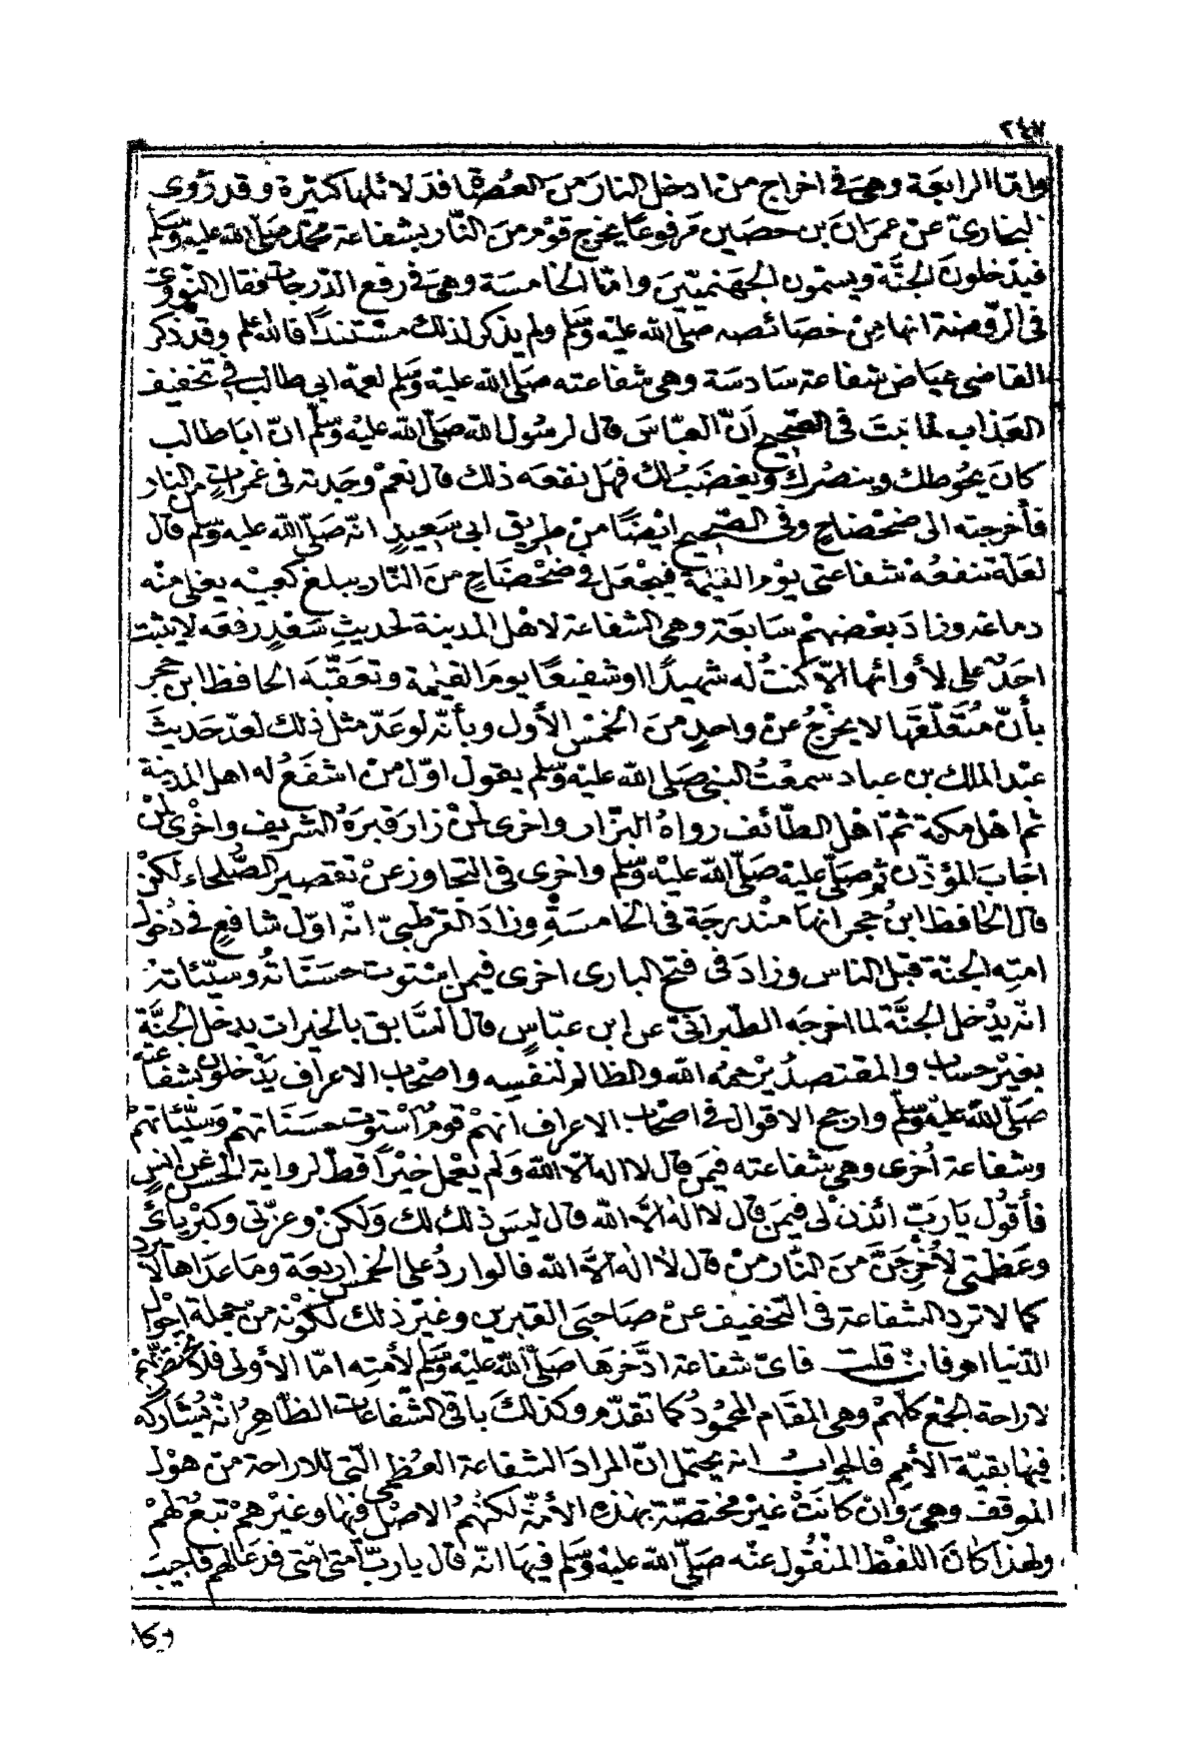 ٢٤٧
وامّا الرابعَة وهىَ فى اخراج منْ ادخل النارَ منَ العُصاة فدَلائلها كثيرة وقد رَوى
البخارىّ عنْ عمرانَ بن حصَين مَرفوعًا يخرج قوْم منَ النّار بشفاعة محمّد صَلّى الله عليه وسَلّم
فيدْخلونَ الجنَّة ويسمّون الجهَنميّينَ وامّا الخامسَة وهىَ فى رفع الدّرجات فقال النووىّ
فى الروضة انها منْ خصَائصه صلّى الله عليْه وسَلّم ولم يذكر لذلك مسْتندًا فالله اعلم وقد ذكر
القاضى عيَاض شفاعة سَادسَة وهى شفاعته صَلّى الله عليْه وسَلّم لعمّه ابى طالب فى تخفيف
العذاب لما ثبتَ فى الصّحيح أنّ العبّاسَ قال لرسُول الله صَلّى الله عليْه وسَلّم انّ ابا طالب
كانَ يحُوطك وينصُرك ويغضَبُ لك فهَل نفعَه ذلك قال نعَمْ وجَدته فى غمراتٍ منَ النار
فأخرجته الى ضحْضاحٍ وفى الصّحيح ايْضًا منْ طريق ابى سَعيدٍ انّه صَلّى الله عليه وسَلّم قال
لعَلّه تنفعُه شفاعتى يوْم القيٰمة فيجْعَل فى ضحْضَاحٍ منَ النّار يبلغ كعبيْه يغلى منْه
دماغه وزادَ بعْضهمْ سَابعَة وهى الشفاعة لاهْل المدينة لحديثِ سَعْدٍ رفعَه لا يثبت
احَدٌ على لأوائها الاّ كنتُ له شهيدًا او شفيعًا يومَ القيٰمة وتعَقّبَه الحافظ ابن حجر
بأنّ مُتعَلّقَها لا يخرُجُ عنْ واحدٍ منَ الخمْس الأول وبأنّه لو عَدّ مثل ذلك لعدّ حَديثَ
عبْد الملك بن عباد سمعْتُ النبىّ صَلى الله عليْه وسَلّم يقول اوّل منْ اشفَعُ له اهل المدينة
ثم اهْل مكة ثمّ اهْل الطّائف رواهُ البزّار واخرى لمنْ زار قبرَهُ الشريف واخْرى لمنْ
اجَابَ المؤذّن ثم صَلّى عليْه صَلّى الله عليْه وسَلّم واخرى فى التجاوز عنْ تقصير الصُّلحاء لكنْ
قال الحافظ ابنُ حجر انهَا منْدرجَة فى الخامسَةِ وزادَ القرطبىّ انّه اوّل شافعٍ فى دُخول
امّتِه الجنّة قبْل الناس وزادَ فى فتح البارى اخرى فيمنِ اسْتوت حسَنَاتهُ وسيّئاتهْ
انّه يدْخل الجنَّة لما اخرجَه الطّبرانىّ عن ابن عبّاسٍ قال السّابق بالخيْرات يدخل الجنَّة
بغيْر حساب والمقتصدُ يرْحمهُ الله والظالم لنفسِه واصْحاب الاعراف يَدْخلون بشفاعته
صَلّى اللهُ عليْهِ وسَلّم وارجح الاقوال فى اصْحاب الاعراف انهمْ قومٌ اسْتوت حسَنَاتهمْ وسَيّئاتهمْ
وشفاعة أخرى وهى شفاعته فيمَنْ قال لا اله الاّ الله وَلم يعْمل خيْرًا قطّ لرواية الحسَن عن انسٍ
فأقولُ يَارَبّ ائذن لى فيمَنْ قال لا الٰه الاّ الله قال ليسَ ذلك لك وَلكنْ وعزّتى وكبْريائى
وعَظمَتى لأُخْرجَنَّ منَ النّار منْ قال لا الٰه الاَّ الله فالوارد على الخمْس اربعَة وما عدَاها لا يرد
كما لا ترد الشفاعة فى التخفيف عنْ صَاحبَى القبرين وغيْر ذلك لكوْنه منْ جملة احوال
الدّنيا اهـ فان قلت فاىّ شفاعة ادّخرَها صَلّى الله عليْه وسَلّم لأمتِه امّا الأولى فلا تختصّ بهمْ
لاراحة الجمْع كلّهمْ وهى المقام المحمُود كما تقدّم وكذلكَ باقى الشّفاعات الظاهِرُ انّه يُشاركه
فيهَا بقيّة الأمم فالجوابُ انه يحتمل انّ المرادَ الشفاعة العظمى الّتى للاراحة منْ هوْل
الموقف وهىَ وَانْ كانتْ غيْر مختصّة بهٰذه الأمّة لكنهُم الاصْل فيها وغيْرهمْ تبعٌ لهمْ
ولهذا كانَ اللفظ المنْقُول عنْه صَلّى الله عليْه وسَلّم فيهَا انّه قال يارَبّ أمّتى امّتى فدعا لهم فأجيبَ
وكا